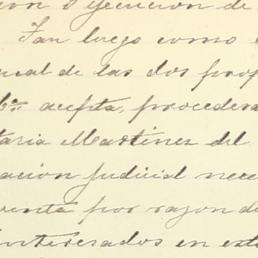 ción o ejecución de
Tan luego como
cual de las dos prop
acepta, procedera
taria Martinez del
ación judicial nece
renta por razon de
interesados en est